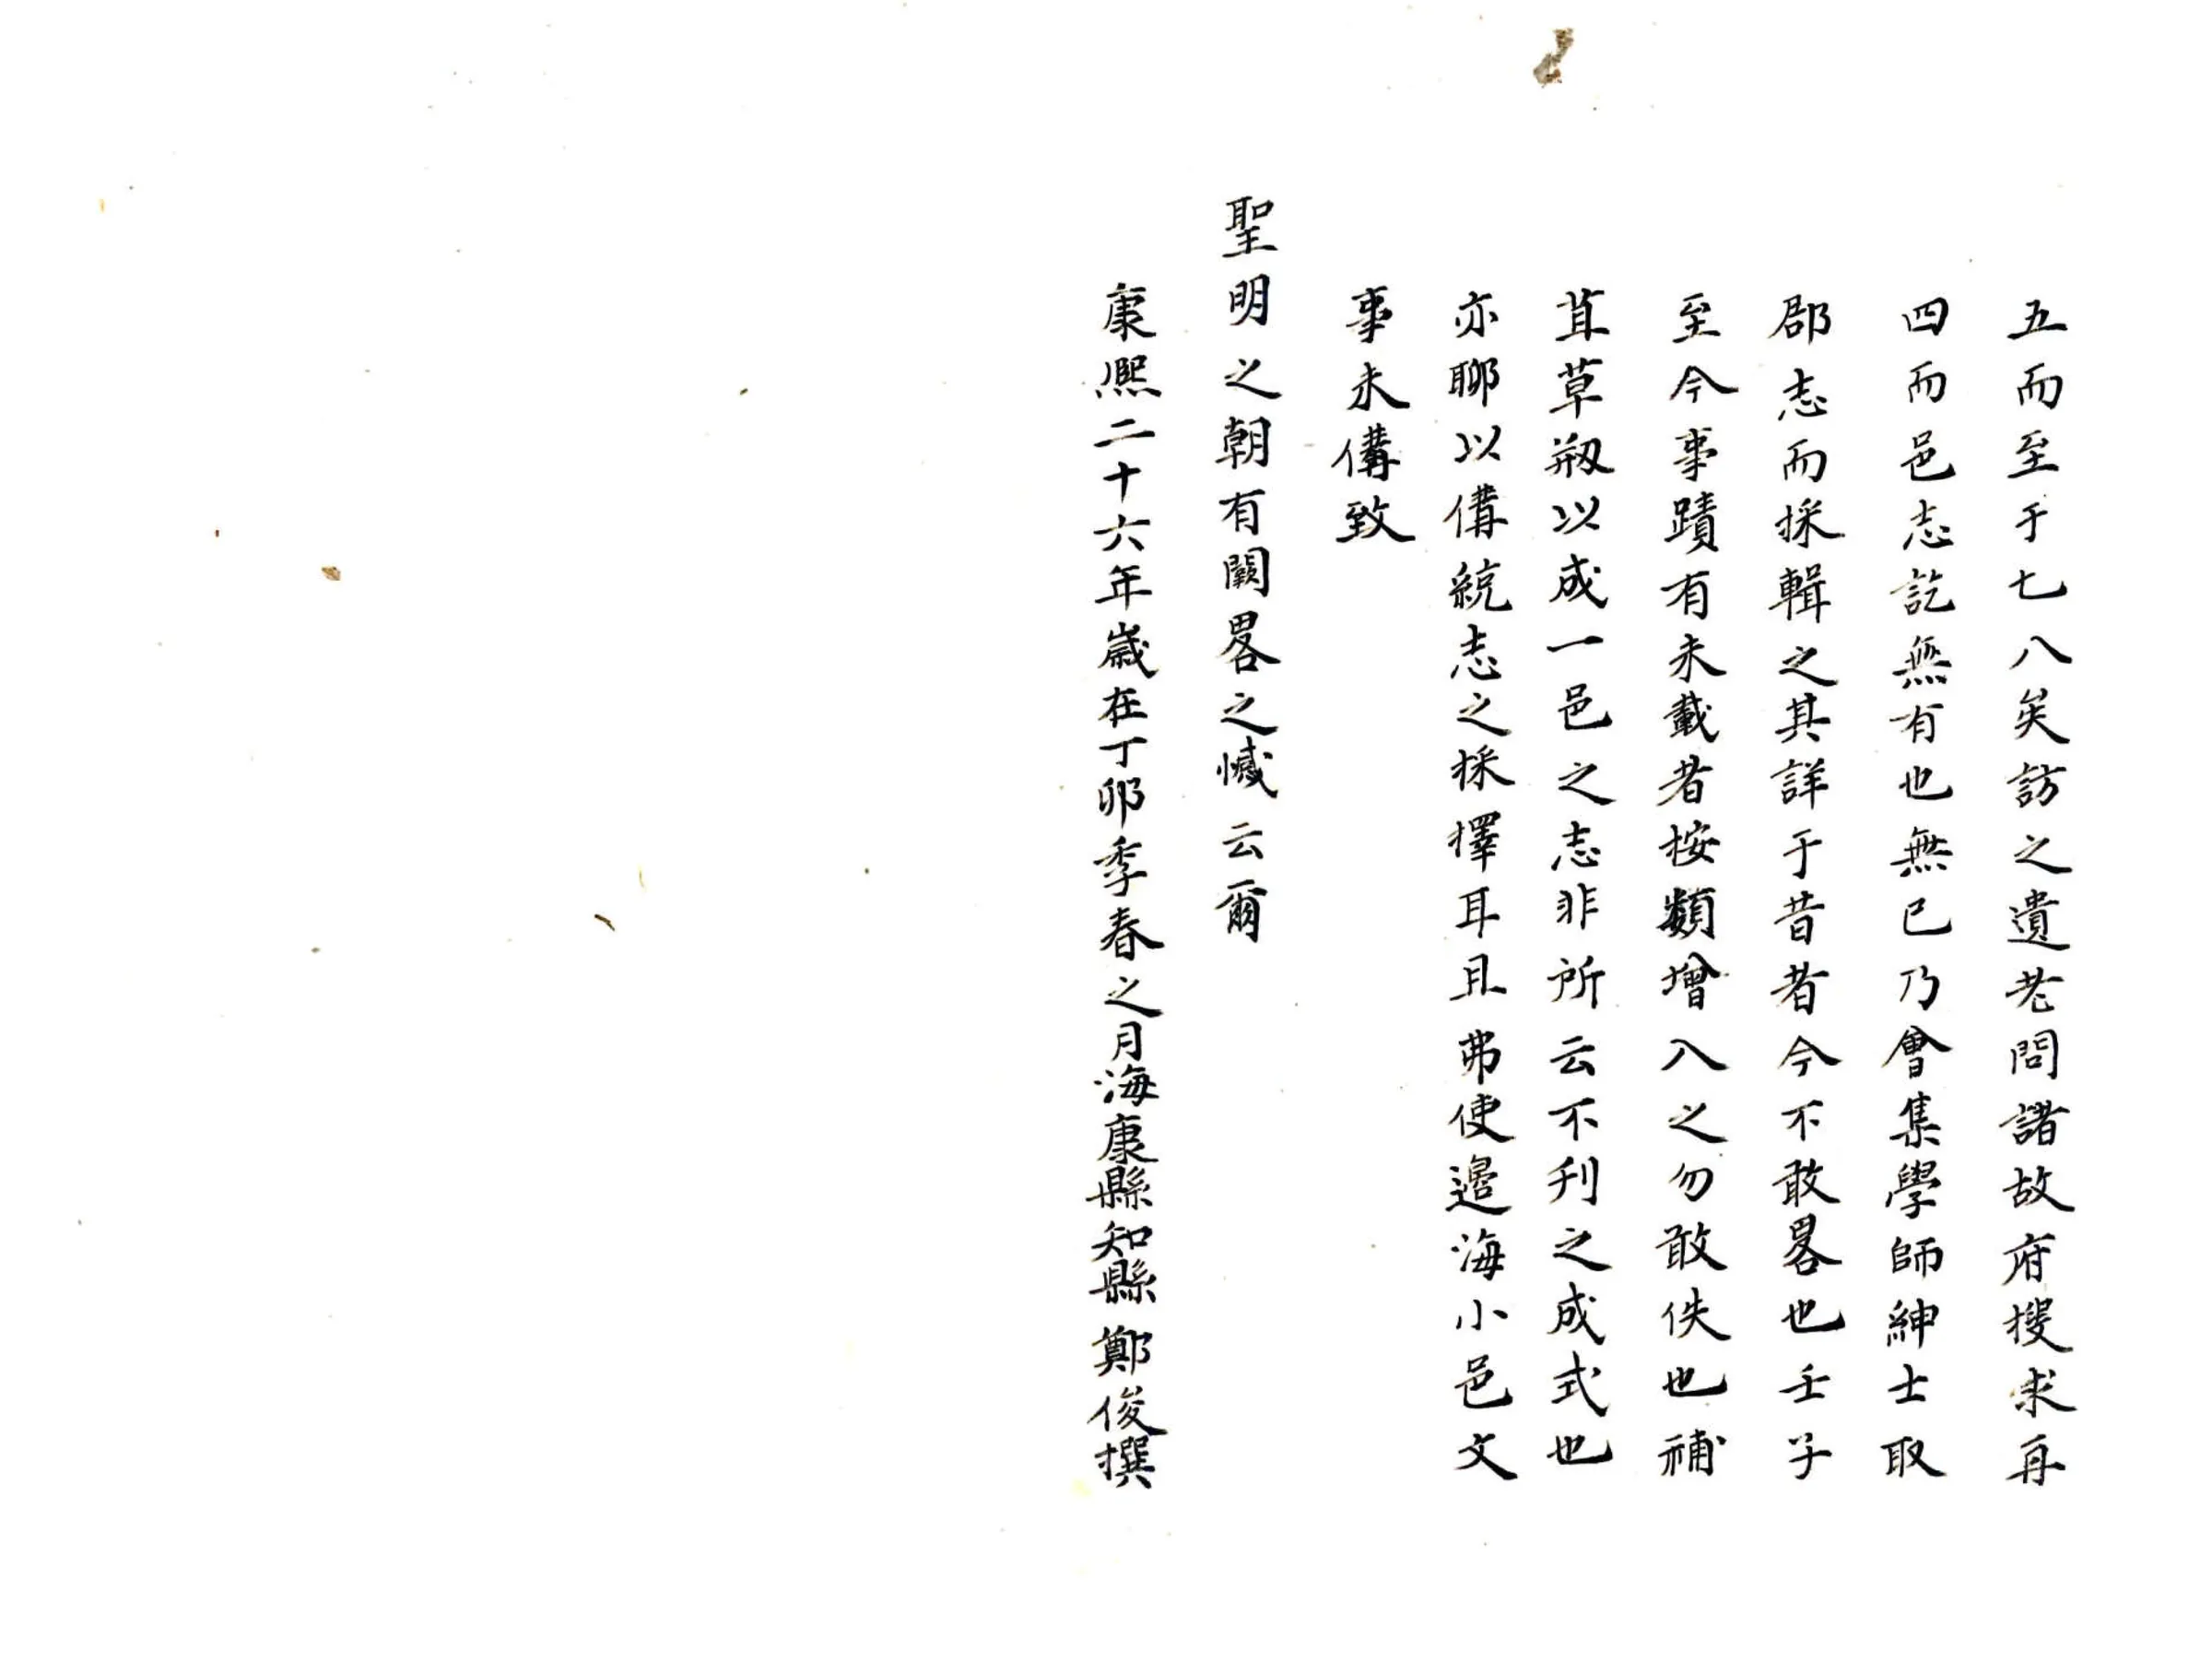 五而至于七八矣訪之遺老問諸故府搜求再
四而邑志訖無有也無已乃會集學師紳士取
郡志而採輯之其詳于昔者今不敢畧也壬子
至今事蹟有未載者按類增入之勿敢佚也補
苴草剏以成一邑之志非所云不刋之成式也
亦聊以備統志之採擇耳且弗使邊海小邑文
事未備致
聖明之朝有闕畧之憾云爾
康熙二十六年歲在丁卯季春之月海康縣知縣鄭俊撰